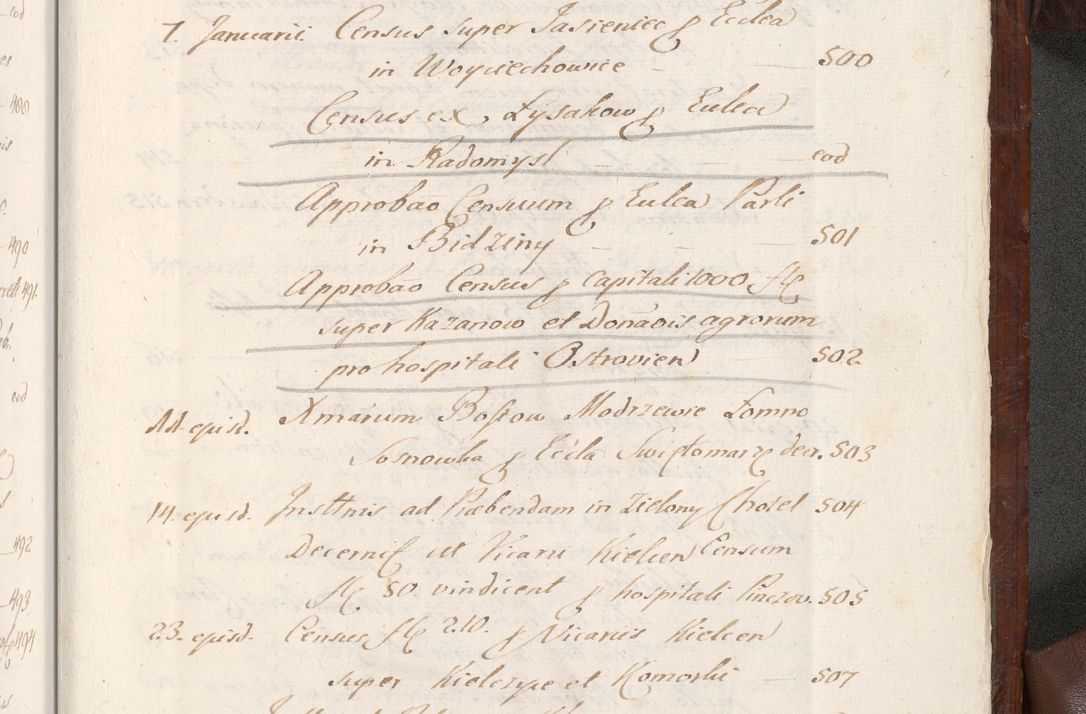 7. Januarii. Census super Jasieniec p Eccl̃ea
in Woyciechowice 500
Census ex Łysakow p Eccl̃ea
in Radomysl eod
Approbao Censuum p Eccl̃ea Parli
in Bidziny 501
Approbao Census p Capitali 1000 fl
super Kazanow et Donaõis agrorum
pro hospitali Ostrovien 502
11. ejusd. Xmarum Modrzewie Łomno
Sosnowka p Swiętomarz decr. 503
14. ejusd. Insttnis ad Præbendam in Zielony Chotel 504
Decernit ut Vicarii Kielcen Censum
fl 50 vindicent p hospitali Pinczov. 505
23. ejusd. Census fl 210. p Vicariis Kielcen
super Kielczyce et Komorki 507
eod
480
490
491
eod
492
493
494